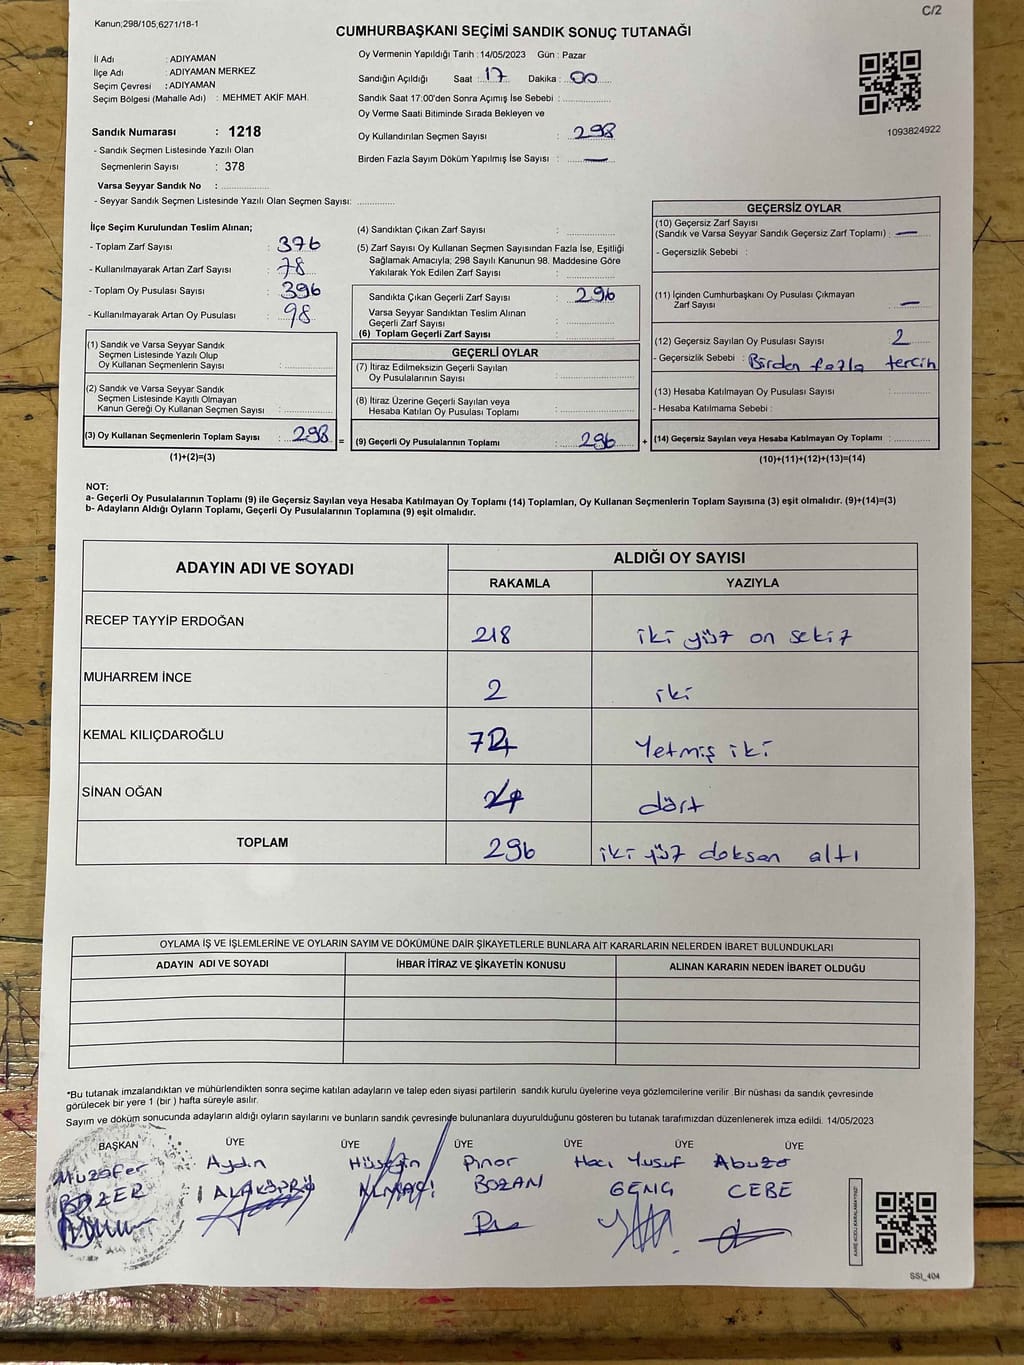 C/2
Kanun;298/105;6271/18-1
CUMHURBAŞKANI SEÇİMİ SANDIK SONUÇ TUTANAĞI
İl Adı : ADIYAMAN
İlçe Adı : ADIYAMAN MERKEZ
Seçim Çevresi : ADIYAMAN
Seçim Bölgesi (Mahalle Adı) : MEHMET AKİF MAH.
Sandık Numarası : 1218
- Sandık Seçmen Listesinde Yazılı Olan
Seçmenlerin Sayısı : 378
Varsa Seyyar Sandık No :
- Seyyar Sandık Seçmen Listesinde Yazılı Olan Seçmen Sayısı:
Oy Vermenin Yapıldığı Tarih : 14/05/2023 Gün : Pazar
Sandığın Açıldığı Saat : 17 Dakika : 00
Sandık Saat 17:00'den Sonra Açımış İse Sebebi :
Oy Verme Saati Bitiminde Sırada Bekleyen ve
Oy Kullandırılan Seçmen Sayısı : 298
Birden Fazla Sayım Döküm Yapılmış İse Sayısı : —
1093824922
İlçe Seçim Kurulundan Teslim Alınan;
- Toplam Zarf Sayısı : 376
- Kullanılmayarak Artan Zarf Sayısı : 78
- Toplam Oy Pusulası Sayısı : 396
- Kullanılmayarak Artan Oy Pusulası : 98
(1) Sandık ve Varsa Seyyar Sandık
Seçmen Listesinde Yazılı Olup
Oy Kullanan Seçmenlerin Sayısı :
(2) Sandık ve Varsa Seyyar Sandık
Seçmen Listesinde Kayıtlı Olmayan
Kanun Gereği Oy Kullanan Seçmen Sayısı :
(3) Oy Kullanan Seçmenlerin Toplam Sayısı : 298 =
(1)+(2)=(3)
(4) Sandıktan Çıkan Zarf Sayısı :
(5) Zarf Sayısı Oy Kullanan Seçmen Sayısından Fazla İse, Eşitliği
Sağlamak Amacıyla; 298 Sayılı Kanunun 98. Maddesine Göre
Yakılarak Yok Edilen Zarf Sayısı :
Sandıkta Çıkan Geçerli Zarf Sayısı : 296
Varsa Seyyar Sandıktan Teslim Alınan
Geçerli Zarf Sayısı :
(6) Toplam Geçerli Zarf Sayısı :
GEÇERLİ OYLAR
(7) İtiraz Edilmeksizin Geçerli Sayılan
Oy Pusulalarının Sayısı :
(8) İtiraz Üzerine Geçerli Sayılan veya
Hesaba Katılan Oy Pusulası Toplamı :
(9) Geçerli Oy Pusulalarının Toplamı : 296 +
GEÇERSİZ OYLAR
(10) Geçersiz Zarf Sayısı
(Sandık ve Varsa Seyyar Sandık Geçersiz Zarf Toplamı) : —
- Geçersizlik Sebebi :
(11) İçinden Cumhurbaşkanı Oy Pusulası Çıkmayan
Zarf Sayısı : —
(12) Geçersiz Sayılan Oy Pusulası Sayısı : 2
- Geçersizlik Sebebi : Birden fazla tercih
(13) Hesaba Katılmayan Oy Pusulası Sayısı :
- Hesaba Katılmama Sebebi :
(14) Geçersiz Sayılan veya Hesaba Katılmayan Oy Toplamı :
(10)+(11)+(12)+(13)=(14)
NOT:
a- Geçerli Oy Pusulalarının Toplamı (9) ile Geçersiz Sayılan veya Hesaba Katılmayan Oy Toplamı (14) Toplamları, Oy Kullanan Seçmenlerin Toplam Sayısına (3) eşit olmalıdır. (9)+(14)=(3)
b- Adayların Aldığı Oyların Toplamı, Geçerli Oy Pusulalarının Toplamına (9) eşit olmalıdır.
ADAYIN ADI VE SOYADI ALDIĞI OY SAYISI
RAKAMLA YAZIYLA
RECEP TAYYİP ERDOĞAN 218 iki yüz on sekiz
MUHARREM İNCE 2 iki
KEMAL KILIÇDAROĞLU 72 Yetmiş iki
SİNAN OĞAN 4 dört
TOPLAM 296 iki yüz doksan altı
OYLAMA İŞ VE İŞLEMLERİNE VE OYLARIN SAYIM VE DÖKÜMÜNE DAİR ŞİKAYETLERLE BUNLARA AİT KARARLARIN NELERDEN İBARET BULUNDUKLARI
ADAYIN ADI VE SOYADI İHBAR İTİRAZ VE ŞİKAYETİN KONUSU ALINAN KARARIN NEDEN İBARET OLDUĞU
*Bu tutanak imzalandıktan ve mühürlendikten sonra seçime katılan adayların ve talep eden siyasi partilerin sandık kurulu üyelerine veya gözlemcilerine verilir .Bir nüshası da sandık çevresinde
görülecek bir yere 1 (bir ) hafta süreyle asılır.
Sayım ve döküm sonucunda adayların aldığı oyların sayılarını ve bunların sandık çevresinde bulunanlara duyurulduğunu gösteren bu tutanak tarafımızdan düzenlenerek imza edildi. 14/05/2023
BAŞKAN ÜYE ÜYE ÜYE ÜYE ÜYE ÜYE
Muzafer Aydın Hüseyin Pınar Hacı Yusuf Abuzo
BOZER ALAKÖPRÜ ALMACI BOZAN GENG CEBE
KARE KODU KARALAMAYINIZ!
SSI_404